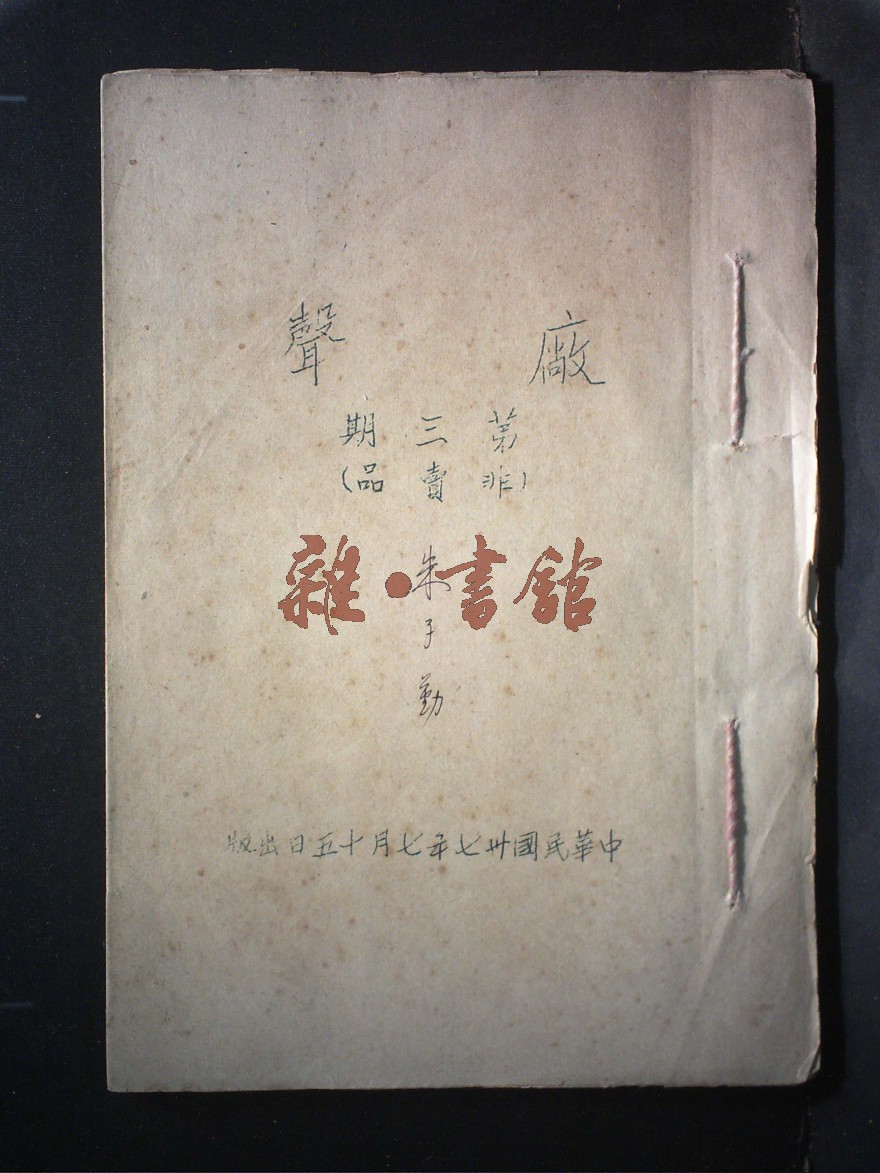 廠聲
第三期
(非賣品)
雜·書館
朱子勤
中華民國卅七年七月十五日出版